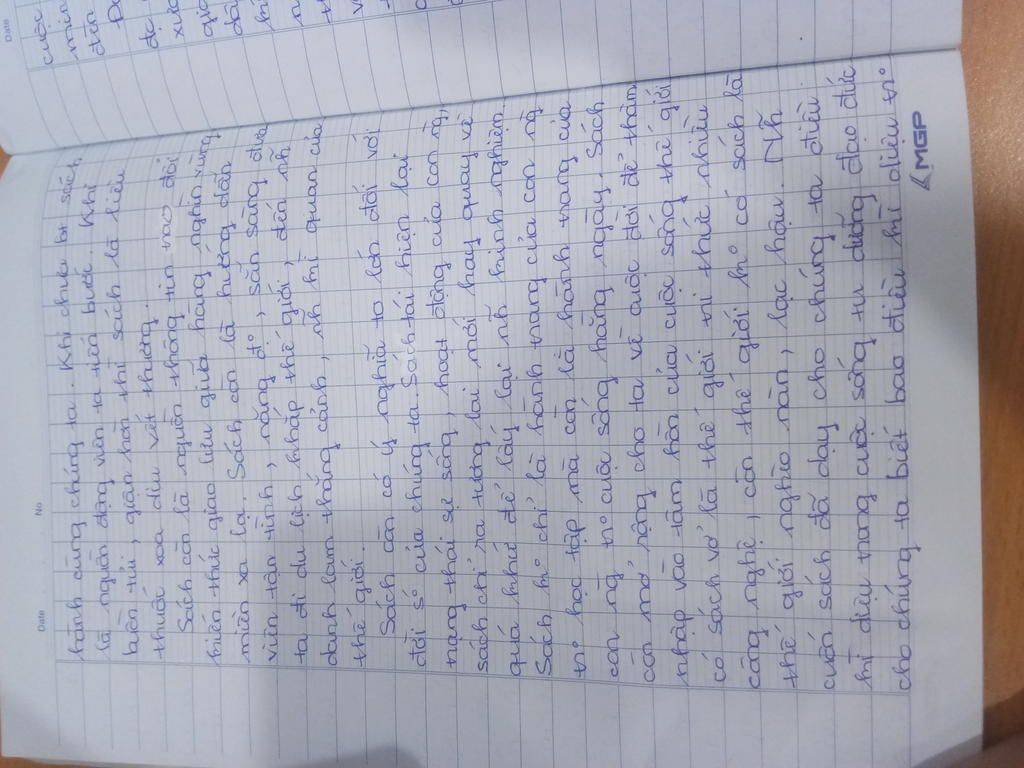 Date
No
hành cùng chúng ta. Khi chưa bt sách
là người động viên ta tiến bước. Khi
buồn tủi, giận hờn thì sách là liều
thuốc xoa dịu vết thương.
Sách còn là nguồn thông tin trao đổi
kiến thức giao lưu giữa hàng nghìn vùng
miền xa lạ. Sách còn là hướng dẫn
viên tận tình, năng độ, sẵn sàng đưa
ta đi du lịch khắp thế giới, đến nh
danh lam thắng cảnh, nh kì quan của
thế giới.
Sách còn có ý nghĩa to lớn đối với
đời số của chúng ta. Sách tái hiện lại
trạng thái sự sống, hoạt động của con ng,
sách chỉ ra tương lai mới hay quay về
quá khứ để lấy lại nh kinh nghiệm.
Sách ko chỉ là hành trang của con ng
tro học tập mà còn là hành trang của
con ng tro cuộc sống hằng ngày. Sách
còn mở rộng cho ta về cuộc đời để thâm
nhập vào tâm hồn của cuộc sống thế giới
có sách vở là thế giới tri thức nhiều
công nghệ, còn thế giới ko có sách là
thế giới nghèo nàn, lạc hậu. Nh
cuốn sách đã dạy cho chúng ta điều
kì diệu trong cuộc sống tu dưỡng đạo đức
cho chúng ta biết bao điều kì diệu tro
MGP
Date
cuộc